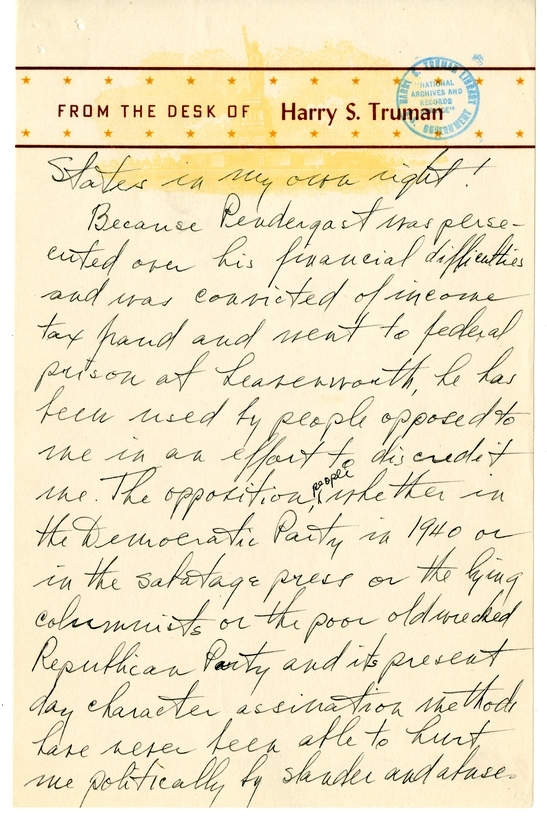 FROM THE DESK OF Harry S. Truman
HARRY S. TRUMAN LIBRARY
NATIONAL
ARCHIVES AND
RECORDS
GOVERNMENT
States in my own right!
Because Pendergast was perse-
cuted over his financial difficulties
and was convicted of income
tax fraud and went to federal
prison at Leavenworth, he has
been used by people opposed to
me in an effort to discredit
me. The opposition, people whether in
the Democratic Party in 1940 or
in the sabatage press or the lying
columnists or the poor old wrecked
Republican Party and its present
day character assination methods
have never been able to hurt
me politically by slander and abuse.